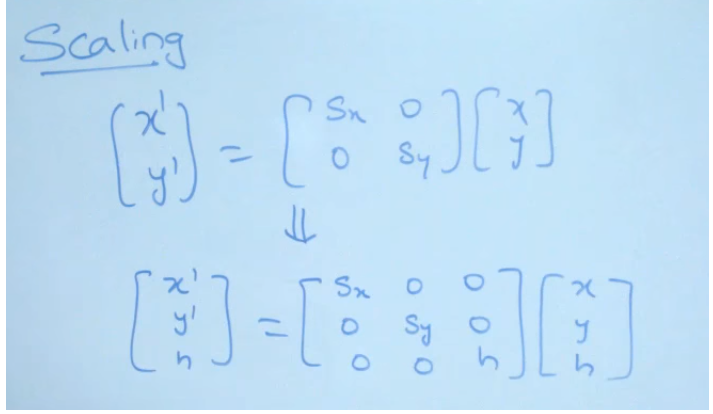 Scaling
[x' y'] = [Sx 0 0 Sy] [x y]
⇓
[x' y' h] = [Sx 0 0 0 Sy 0 0 0 h] [x y h]